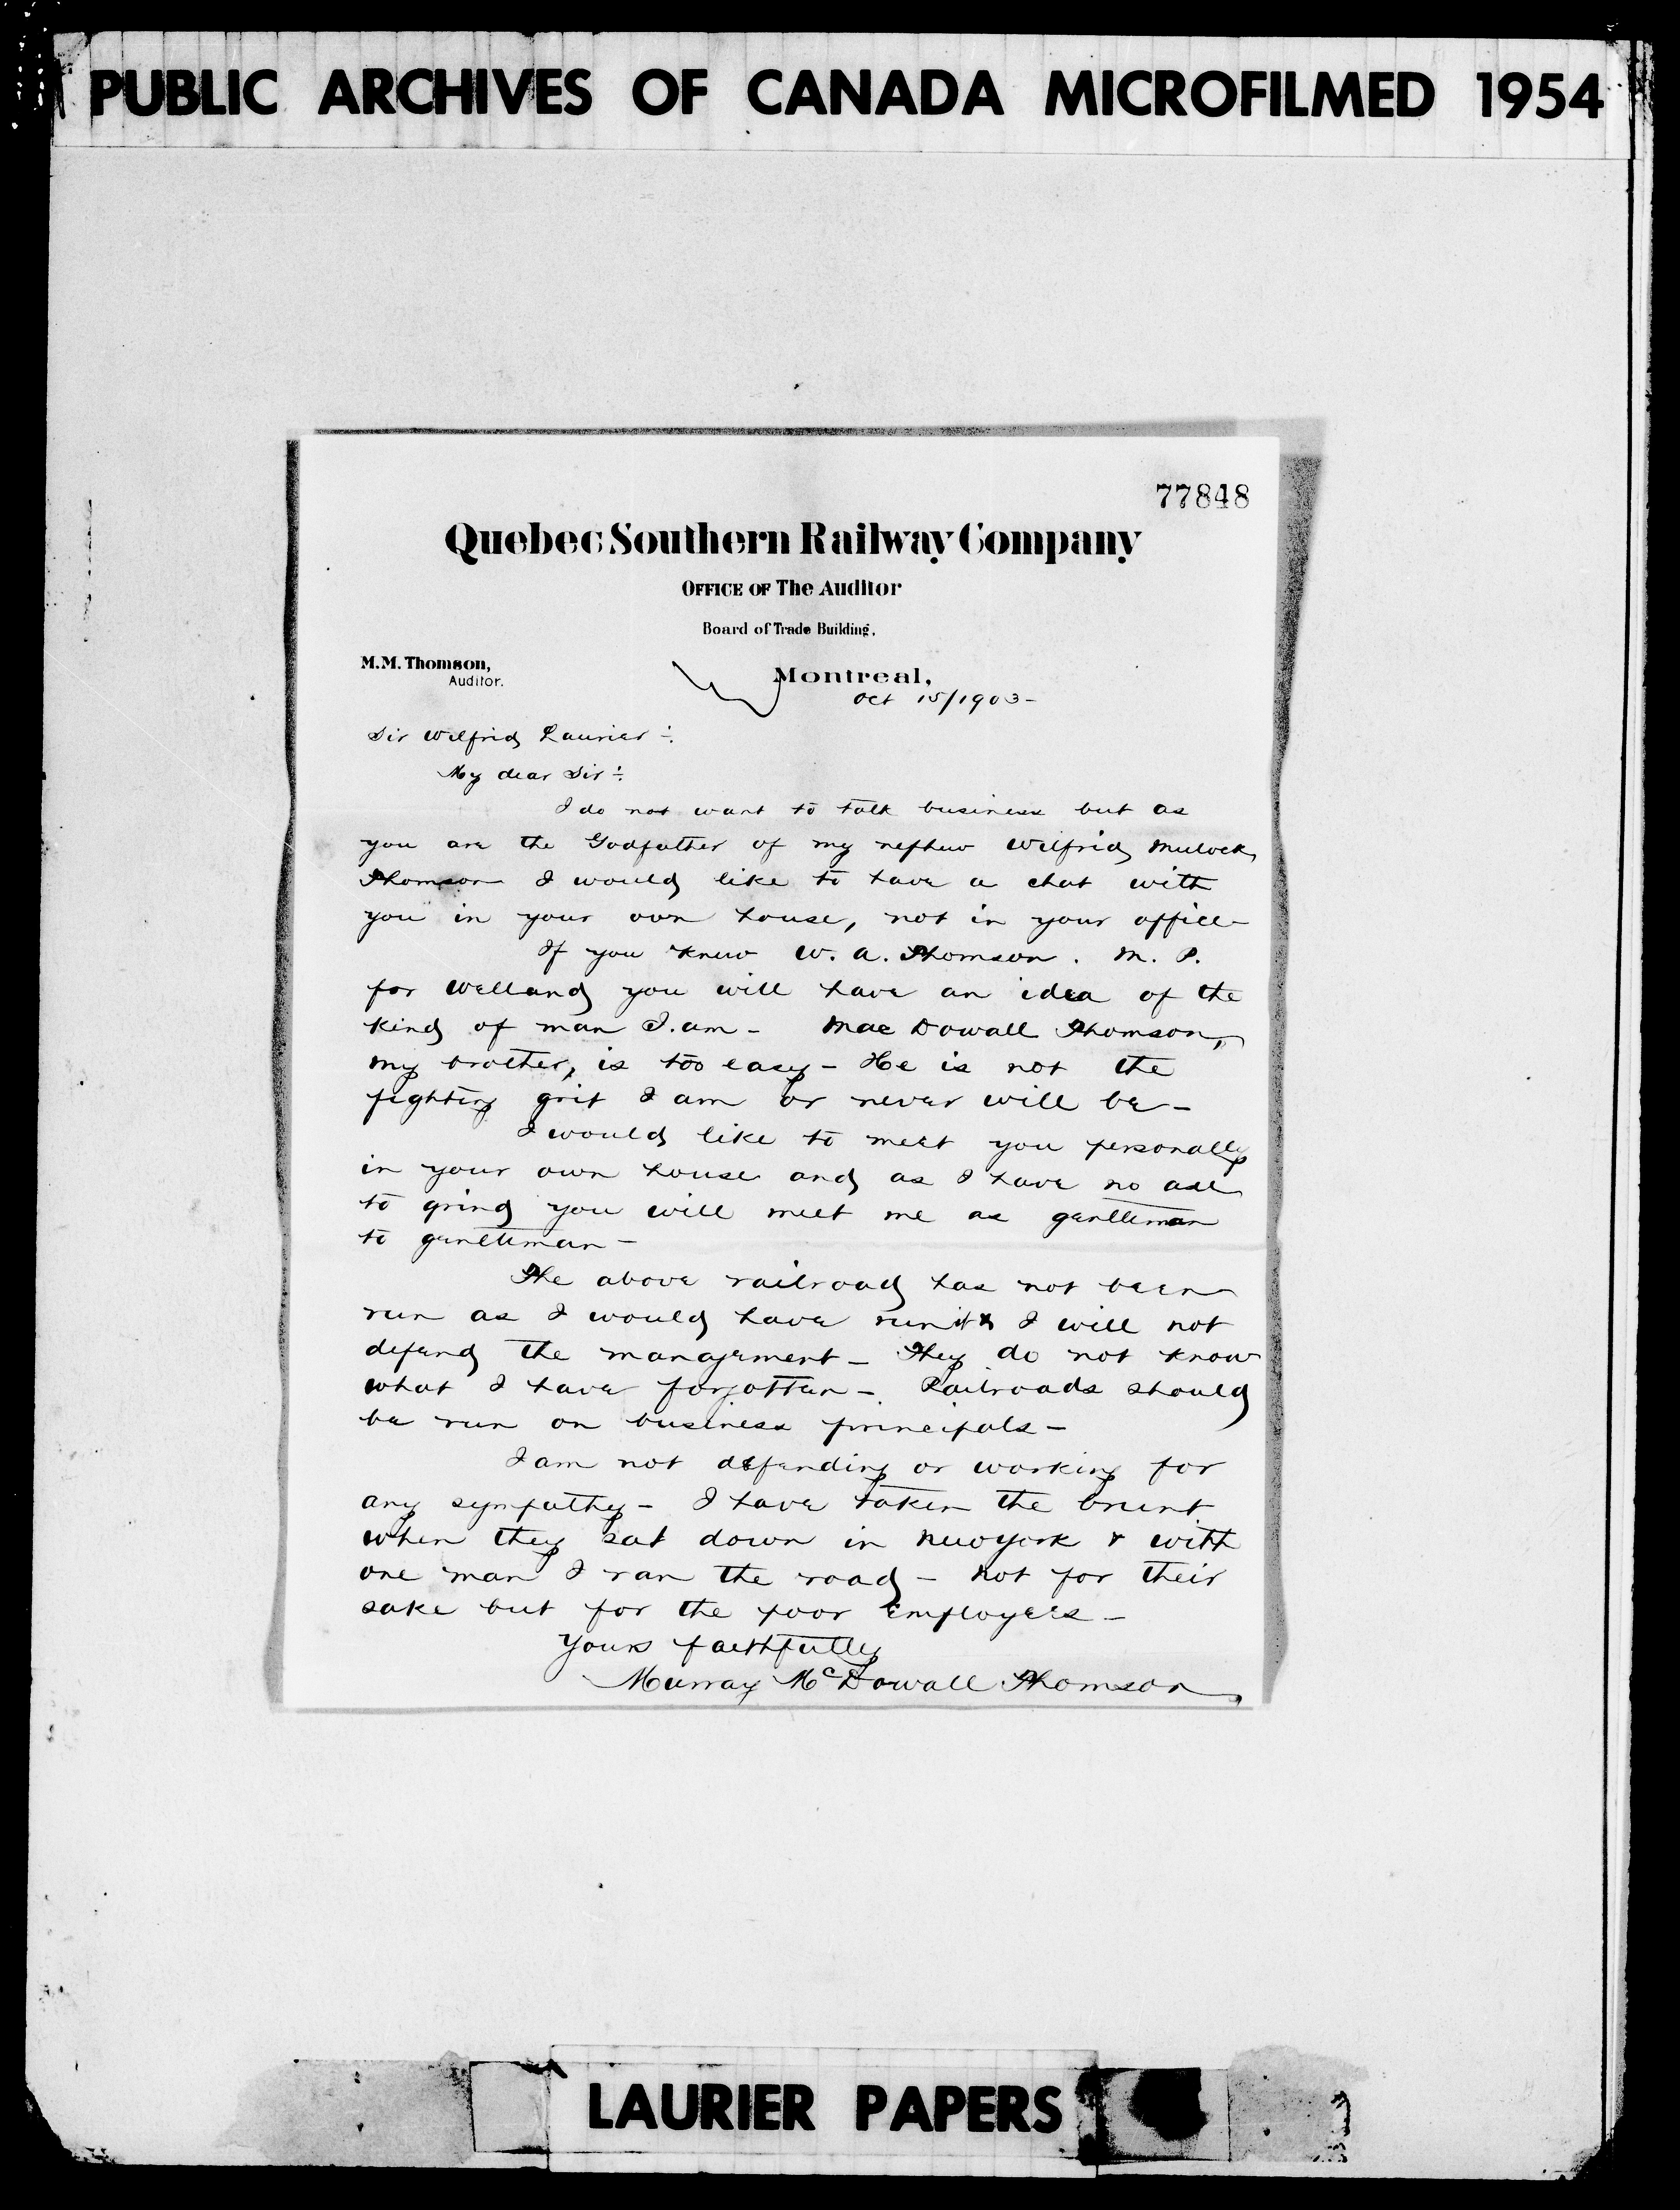 PUBLIC ARCHIVES OF CANADA MICROFILMED 1954
77848
Quebec Southern Railway Company
OFFICE OF The Auditor
Board of Trade Building.
M.M. Thomson,
Auditor.
Montreal,
Oct 15/1903-
Sir Wilfrid Laurier -:
My dear Sir -:
I do not want to talk business but as
you are the Godfather of my nephew Wilfrid Mulock
Thomson I would like to have a chat with
you in your own house, not in your office-
If you knew W. A. Thomson. M. P.
for Welland you will have an idea of the
kind of man I am - Mac Dowall Thomson,
my brother, is too easy - He is not the
fighting grit I am or never will be -
I would like to meet you personally
in your own house and as I have no axe
to grind you will meet me as gentleman
to gentleman -
The above railroad has not been
run as I would have run it & I will not
defend the management - They do not know
what I have forgotten - Railroads should
be run on business principals -
I am not defending or working for
any sympathy - I have taken the brunt
when they sat down in New York & with
one man I ran the road - not for their
sake but for the poor employees -
Yours faithfully
Murray McDowall Thomson
LAURIER PAPERS